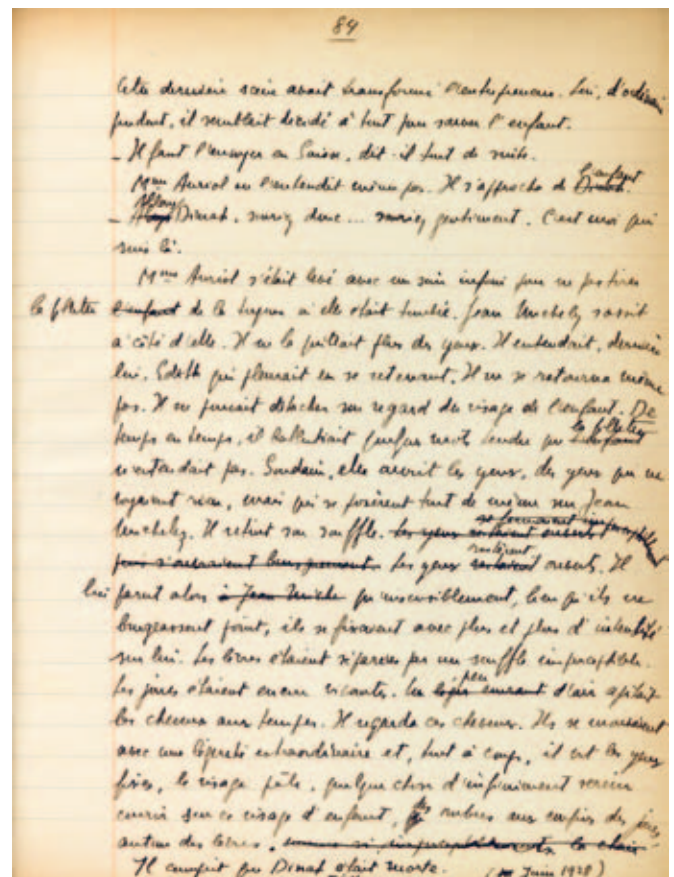 84
Cette dernière scène avait transformé l'entrepreneur. Lui, d'ordinaire
prudent, il semblait décidé à tout pour sauver l'enfant.
_ Il faut l'envoyer en Suisse, dit-il tout de suite.
Mme Auriol ne l'entendit même pas. Il s'approcha de Dinah. l'enfant
_ Dinah, souriez donc... souriez gentiment. C'est moi qui
suis là.
Mme Auriol s'était levé avec un soin infini pour ne pas tirer
la fillette l'enfant de la torpeur où elle était tombée. Jean Michelez s'assit
à côté d'elle. Il ne la quittait plus des yeux. Il entendait, derrière
lui, Edith qui pleurait en se retenant. Il ne se retourna même
pas. Il ne pouvait détacher son regard du visage de l'enfant. De
temps en temps, il balbutiait quelques mots tendres que l'enfant la fillette
n'entendait pas. Soudain, elle ouvrit les yeux, des yeux qui ne
voyaient rien, mais qui se posèrent tout de même sur Jean
Michelez. Il retint son souffle. Les yeux restaient ouverts se fermaient imperceptiblement
puis s'ouvraient longuement. Les yeux restaient restèrent ouverts. Il
lui parut alors à Jean Miche qu'insensiblement, bien qu'ils ne
bougeassent point, ils se fixaient avec plus et plus d'intensité
sur lui. Les lèvres étaient séparées par un souffle imperceptible.
Les joues étaient encore vivantes. Un léger courant peu d'air agitait
les cheveux aux tempes. Il regarda ces cheveux. Ils se mouvaient
avec une légèreté extraordinaire et, tout à coup, il vit les yeux
fixes, le visage pâle, quelque chose d'infiniment serein
courir sur ce visage d'enfant, des ombres aux confins des joues
autour des lèvres, comme si, imperceptiblement, la chair
Il comprit que Dinah était morte.
(Juin 1928)